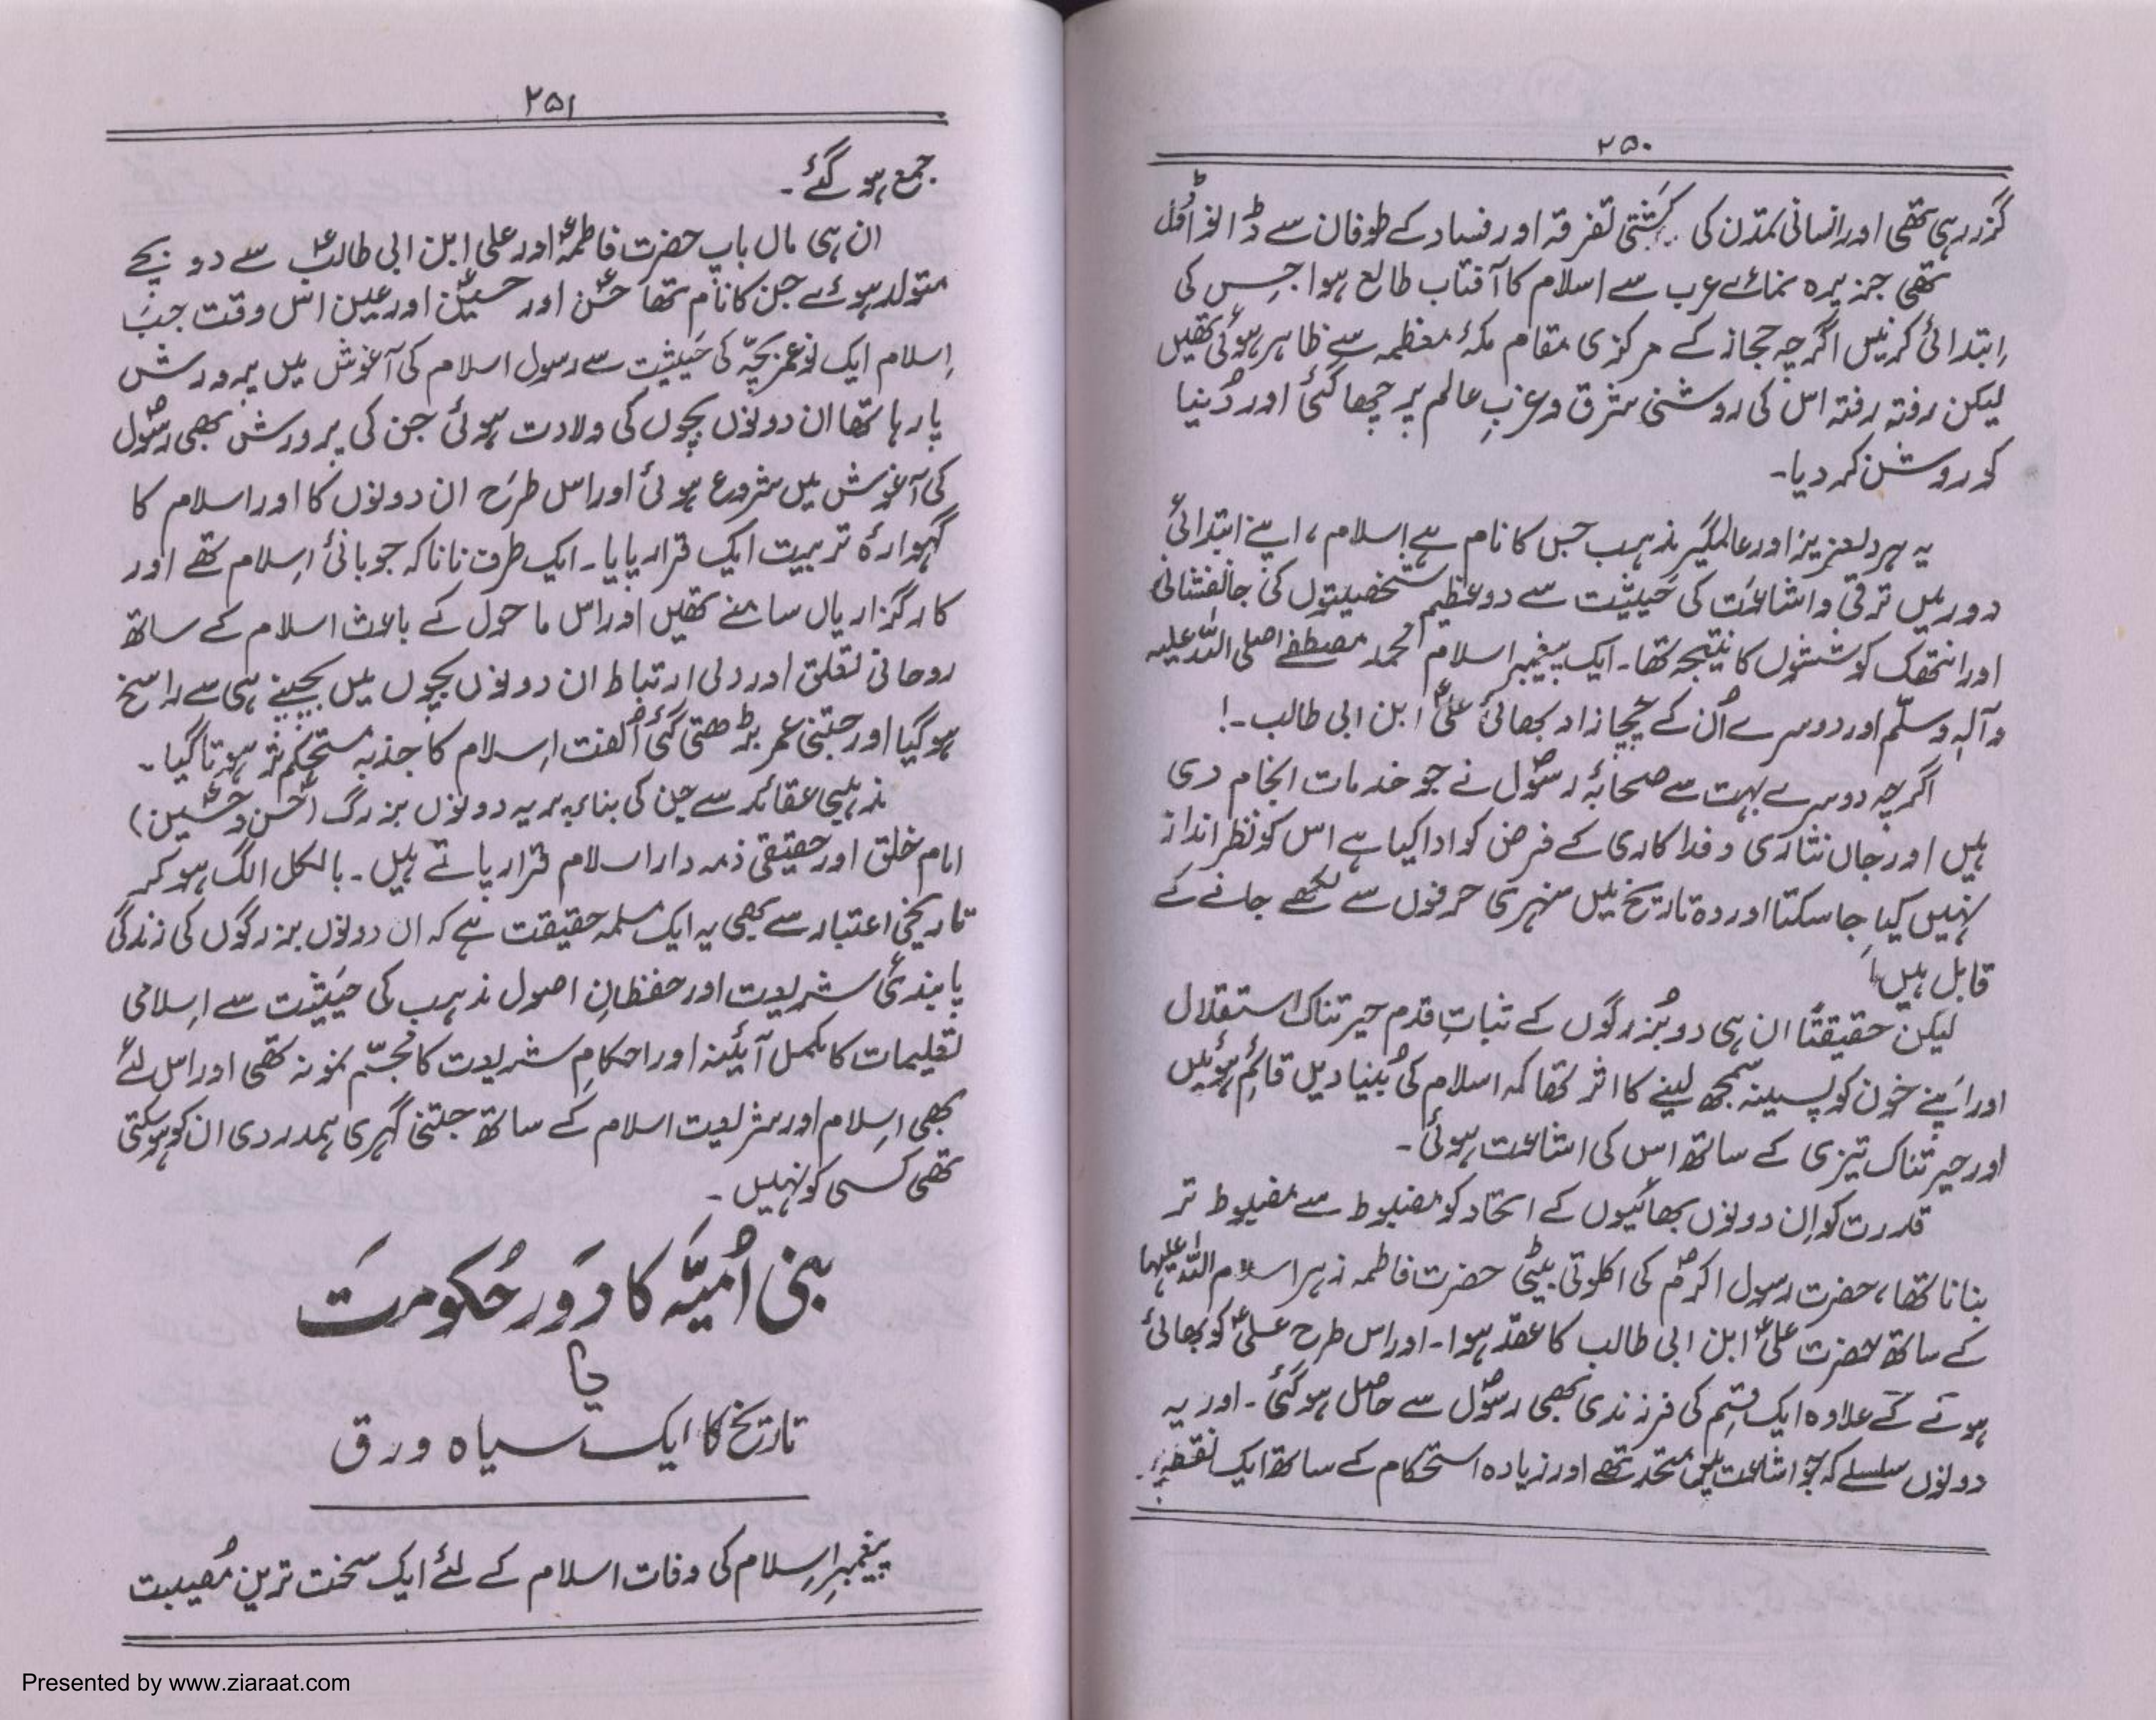 ۲۵۰
گزر رہی تھی اور انسانی تمدّن کی کشتی تفرقہ اور فساد کے طوفان سے ڈانواڈول
تھی جزیرہ نمائے عرب سے اسلام کا آفتاب طالع ہوا جس کی
ابتدائی کرنیں اگرچہ حجاز کے مرکزی مقام مکۂ معظمہ سے ظاہر ہوئی تھیں
لیکن رفتہ رفتہ اس کی روشنی شرق و غربِ عالم پر چھا گئی اور دُنیا
کو روشن کر دیا۔
یہ ہردلعزیز اور عالمگیر مذہب جس کا نام ہے اسلام، اپنے ابتدائی
دور میں ترقی و اشاعت کی حَیثیت سے دو عظیم شخصیتوں کی جانفشانی
اور انتھک کوششوں کا نتیجہ تھا۔ ایک پیغمبر اسلام محمد مصطفےٰ صلی اللہ علیہ
و آلہٖ وسلّم اور دوسرے اُن کے چچا زاد بھائی علیؑ ابن ابی طالب۔!
اگرچہ دوسرے بہت سے صحابۂ رسولؐ نے جو خدمات انجام دی
ہیں اور جاں نثاری و فداکاری کے فرض کو ادا کیا ہے اس کو نظر انداز
نہیں کیا جا سکتا اور وہ تاریخ میں سنہری حرفوں سے لکھے جانے کے
قابل ہیں!
لیکن حقیقتًا ان ہی دو بُزرگوں کے ثباتِ قدم حیرتناک استقلال
اور اَپنے خون کو پسینہ سمجھ لینے کا اثر تھا کہ اسلام کی بُنیادیں قائم ہوئیں
اور حیرتناک تیزی کے ساتھ اس کی اشاعت ہوئی۔
قدرت کو اِن دونوں بھائیوں کے اتحاد کو مضبوط سے مضبوط تر
بنانا تھا، حضرت رسول اکرمؐ کی اکلوتی بیٹی حضرت فاطمہ زہرا سلام اللہ علیہا
کے ساتھ حضرت علیؑ ابن ابی طالب کا عقد ہوا۔ اور اس طرح علیؑ کو بھائی
ہونے کے علاوہ ایک قسِم کی فرزندی بھی رسولؐ سے حاصل ہو گئی۔ اور یہ
دونوں سلسلے کہ جو اشاعت میں متحد تھے اور زیادہ استحکام کے ساتھ ایک نقطہ پر
۲۵۱
جمع ہو گئے۔
ان ہی ماں باپ حضرت فاطمہؑ اور علی ابن ابی طالبؑ سے دو بچے
متولد ہوئے جن کا نام تھا حسنؑ اور حسینؑ اور عین اس وقت جب
اِسلام ایک نوعمر بچّہ کی حَیثیت سے رسول اسلام کی آغوش میں پرورش
پا رہا تھا ان دونوں بچوں کی ولادت ہوئی جن کی پرورش بھی رسولؐ
کی آغوش میں شروع ہوئی اور اس طرح ان دونوں کا اور اسلام کا
گہوارۂ تربیت ایک قرار پایا۔ ایک طرف نانا کہ جو بانیٔ اِسلام تھے اور
کارگزاریاں سامنے تھیں اور اس ماحول کے باعث اسلام کے ساتھ
روحانی تعلق اور دلی ارتباط ان دونوں بچوں میں بچپنے ہی سے راسخ
ہو گیا اور جتنی عمر بڑھتی گئی اُلفت اِسلام کا جذبہ مستحکم تر ہوتا گیا۔
مذہبی عقائد سے جن کی بناء پر یہ دونوں بزرگ (حسنؑ و حسینؑ)
امام خلق اور حقیقی ذمہ دار اسلام قرار پاتے ہیں۔ بالکل الگ ہو کر
تاریخی اعتبار سے بھی یہ ایک مسلمہ حقیقت ہے کہ ان دونوں بزرگوں کی زندگی
پابندیٔ شریعت اور حفظانِ اصول مذہب کی حَیثیت سے اِسلامی
تعلیمات کا مکمل آئینہ اور احکامِ شریعت کا مُجسّم نمونہ تھی اور اس لئے
بھی اِسلام اور شریعت اسلام کے ساتھ جتنی گہری ہمدردی ان کو ہو سکتی
تھی کسی کو نہیں۔
بنی اُمیّہ کا دَور حُکومت
یا
تاریخ کا ایک سیاہ ورق
پیغمبرِ اِسلام کی وفات اسلام کے لئے ایک سخت ترین مُصیبت
Presented by www.ziaraat.com